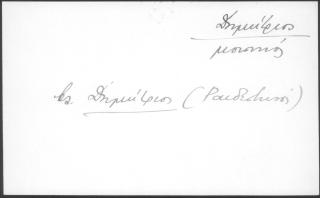 Δημήτριος
μοναχός
βλ. Δημήτριος (Ραιδεστινός)